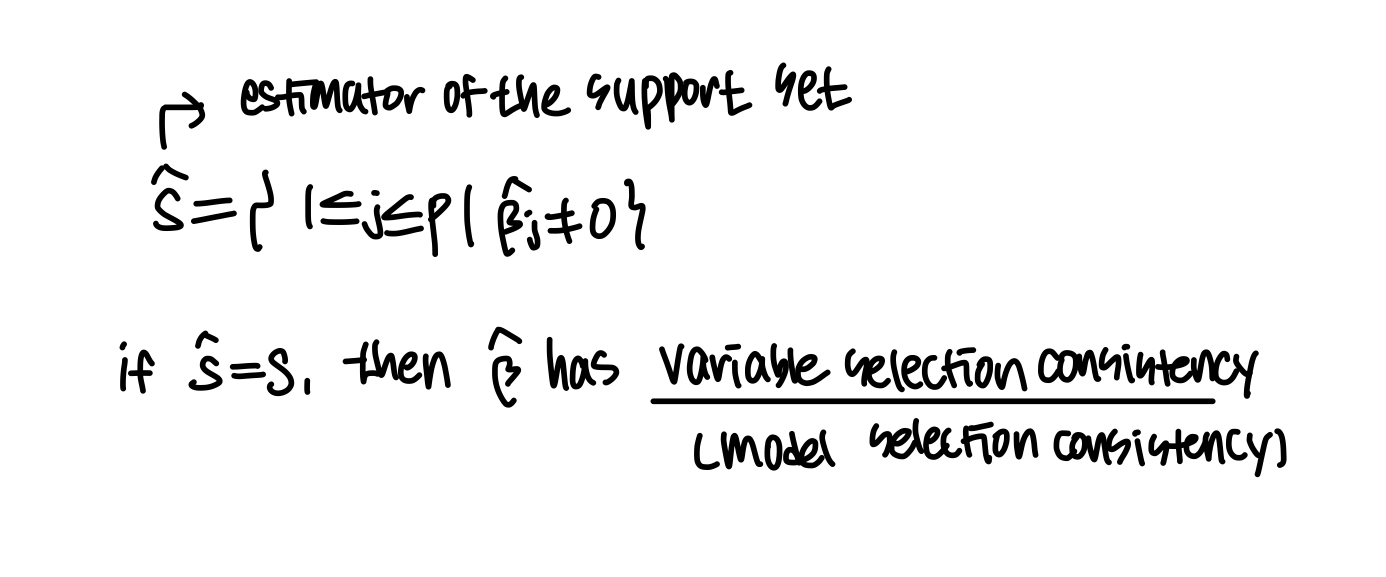 ↱ estimator of the support set
Ŝ = { 1 ≤ j ≤ p | β̂j ≠ 0 }
if Ŝ = S, then β̂ has variable selection consistency
(model selection consistency)